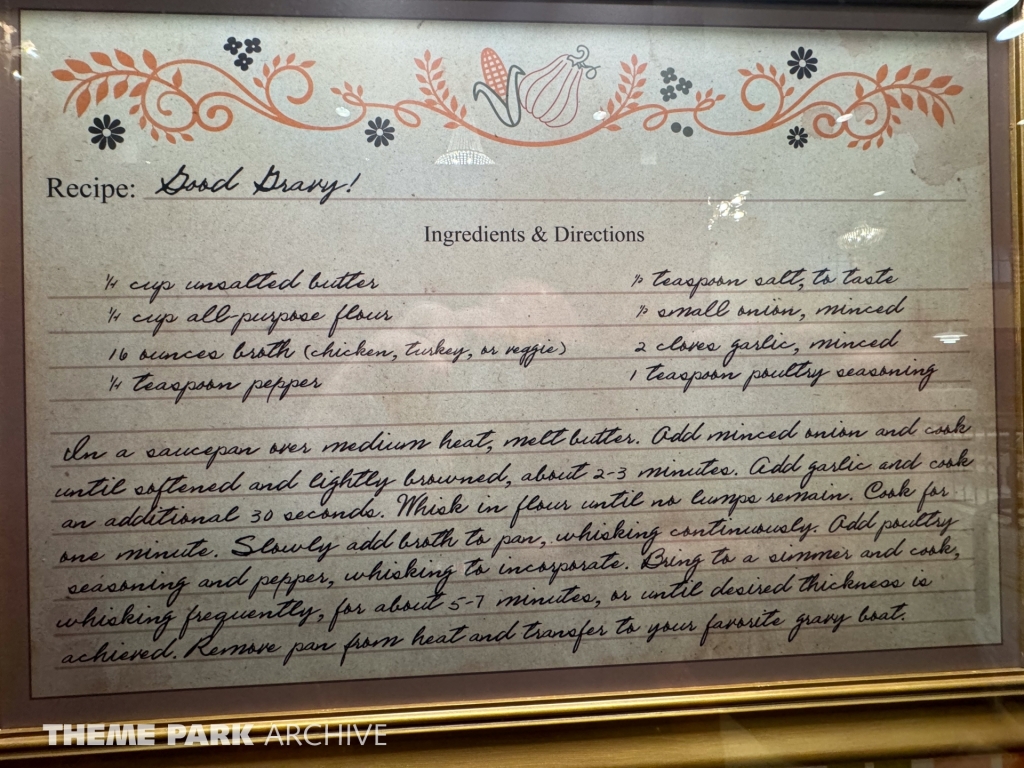 Recipe: Good Gravy!
Ingredients & Directions
1/4 cup unsalted butter
1/4 cup all-purpose flour
16 ounces broth (chicken, turkey, or veggie)
1/4 teaspoon pepper
teaspoon salt, to taste
small onion, minced
2 cloves garlic, minced
1 teaspoon poultry seasoning
In a saucepan over medium heat, melt butter. Add minced onion and cook
until softened and lightly browned, about 2-3 minutes. Add garlic and cook
an additional 30 seconds. Whisk in flour until no lumps remain. Cook for
one minute. Slowly add broth to pan, whisking continuously. Add poultry
seasoning and pepper, whisking to incorporate. Bring to a simmer and cook,
whisking frequently, for about 5-7 minutes, or until desired thickness is
achieved. Remove pan from heat and transfer to your favorite gravy boat.
THEME PARK ARCHIVE